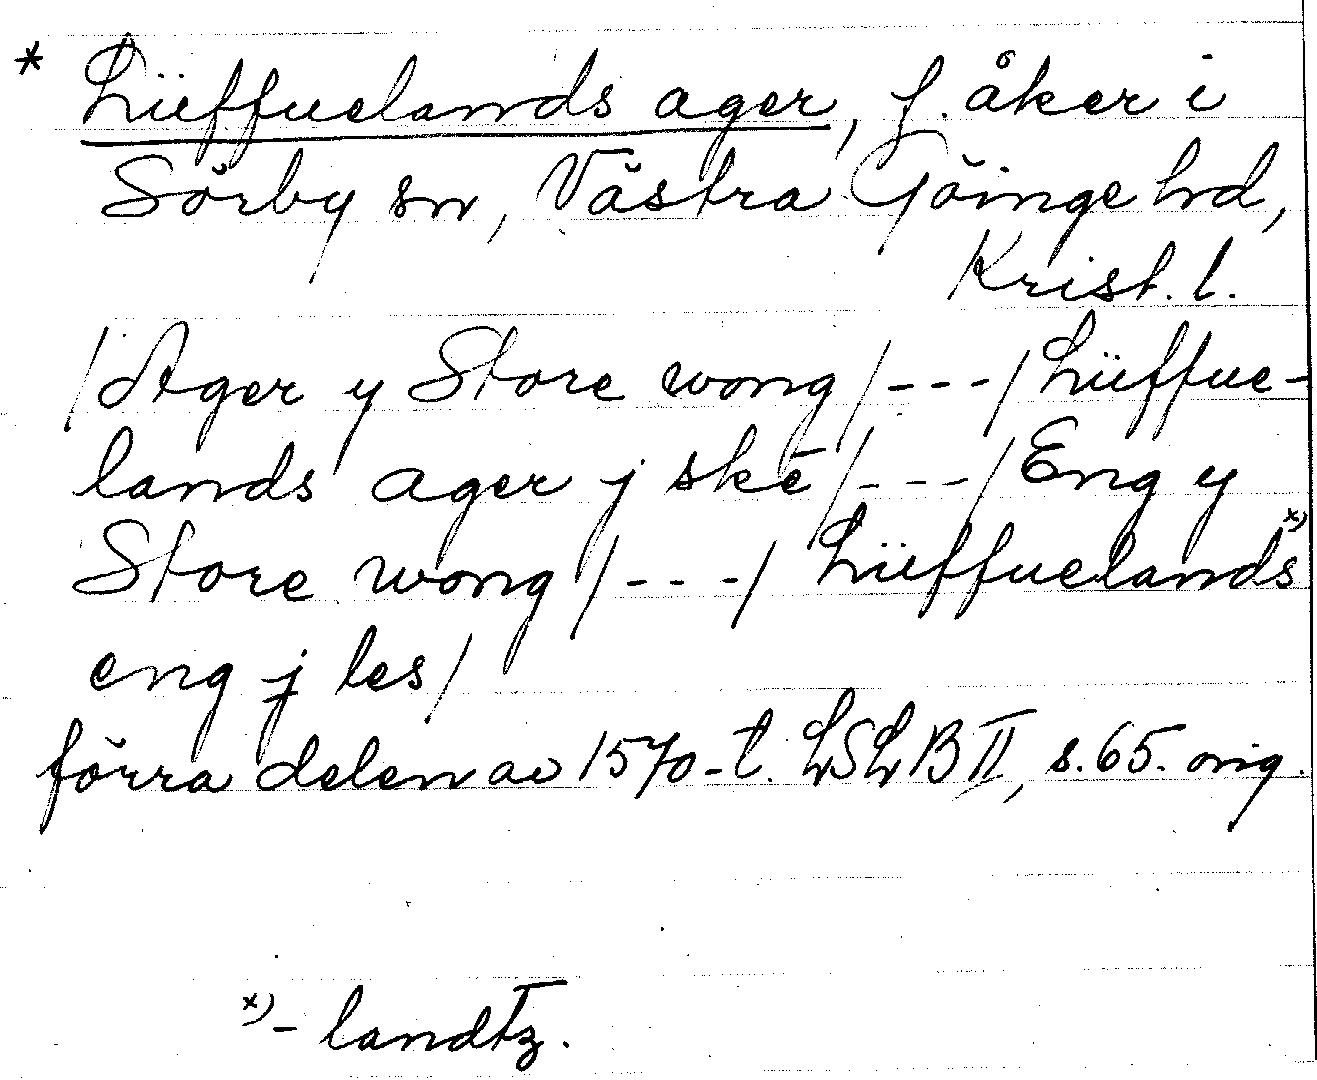 * Lüffuelands ager, f. åker i
Sörby sn, Västra Göinge hd,
Krist. l.
/Ager y Store wong/---/Lüffue-
lands ager j skē/---/Eng y
Store wong/---/Lüffuelands x)
eng j les/
förra delen av 1570-t. LSLB II, s. 65. orig.
x) - landtz.